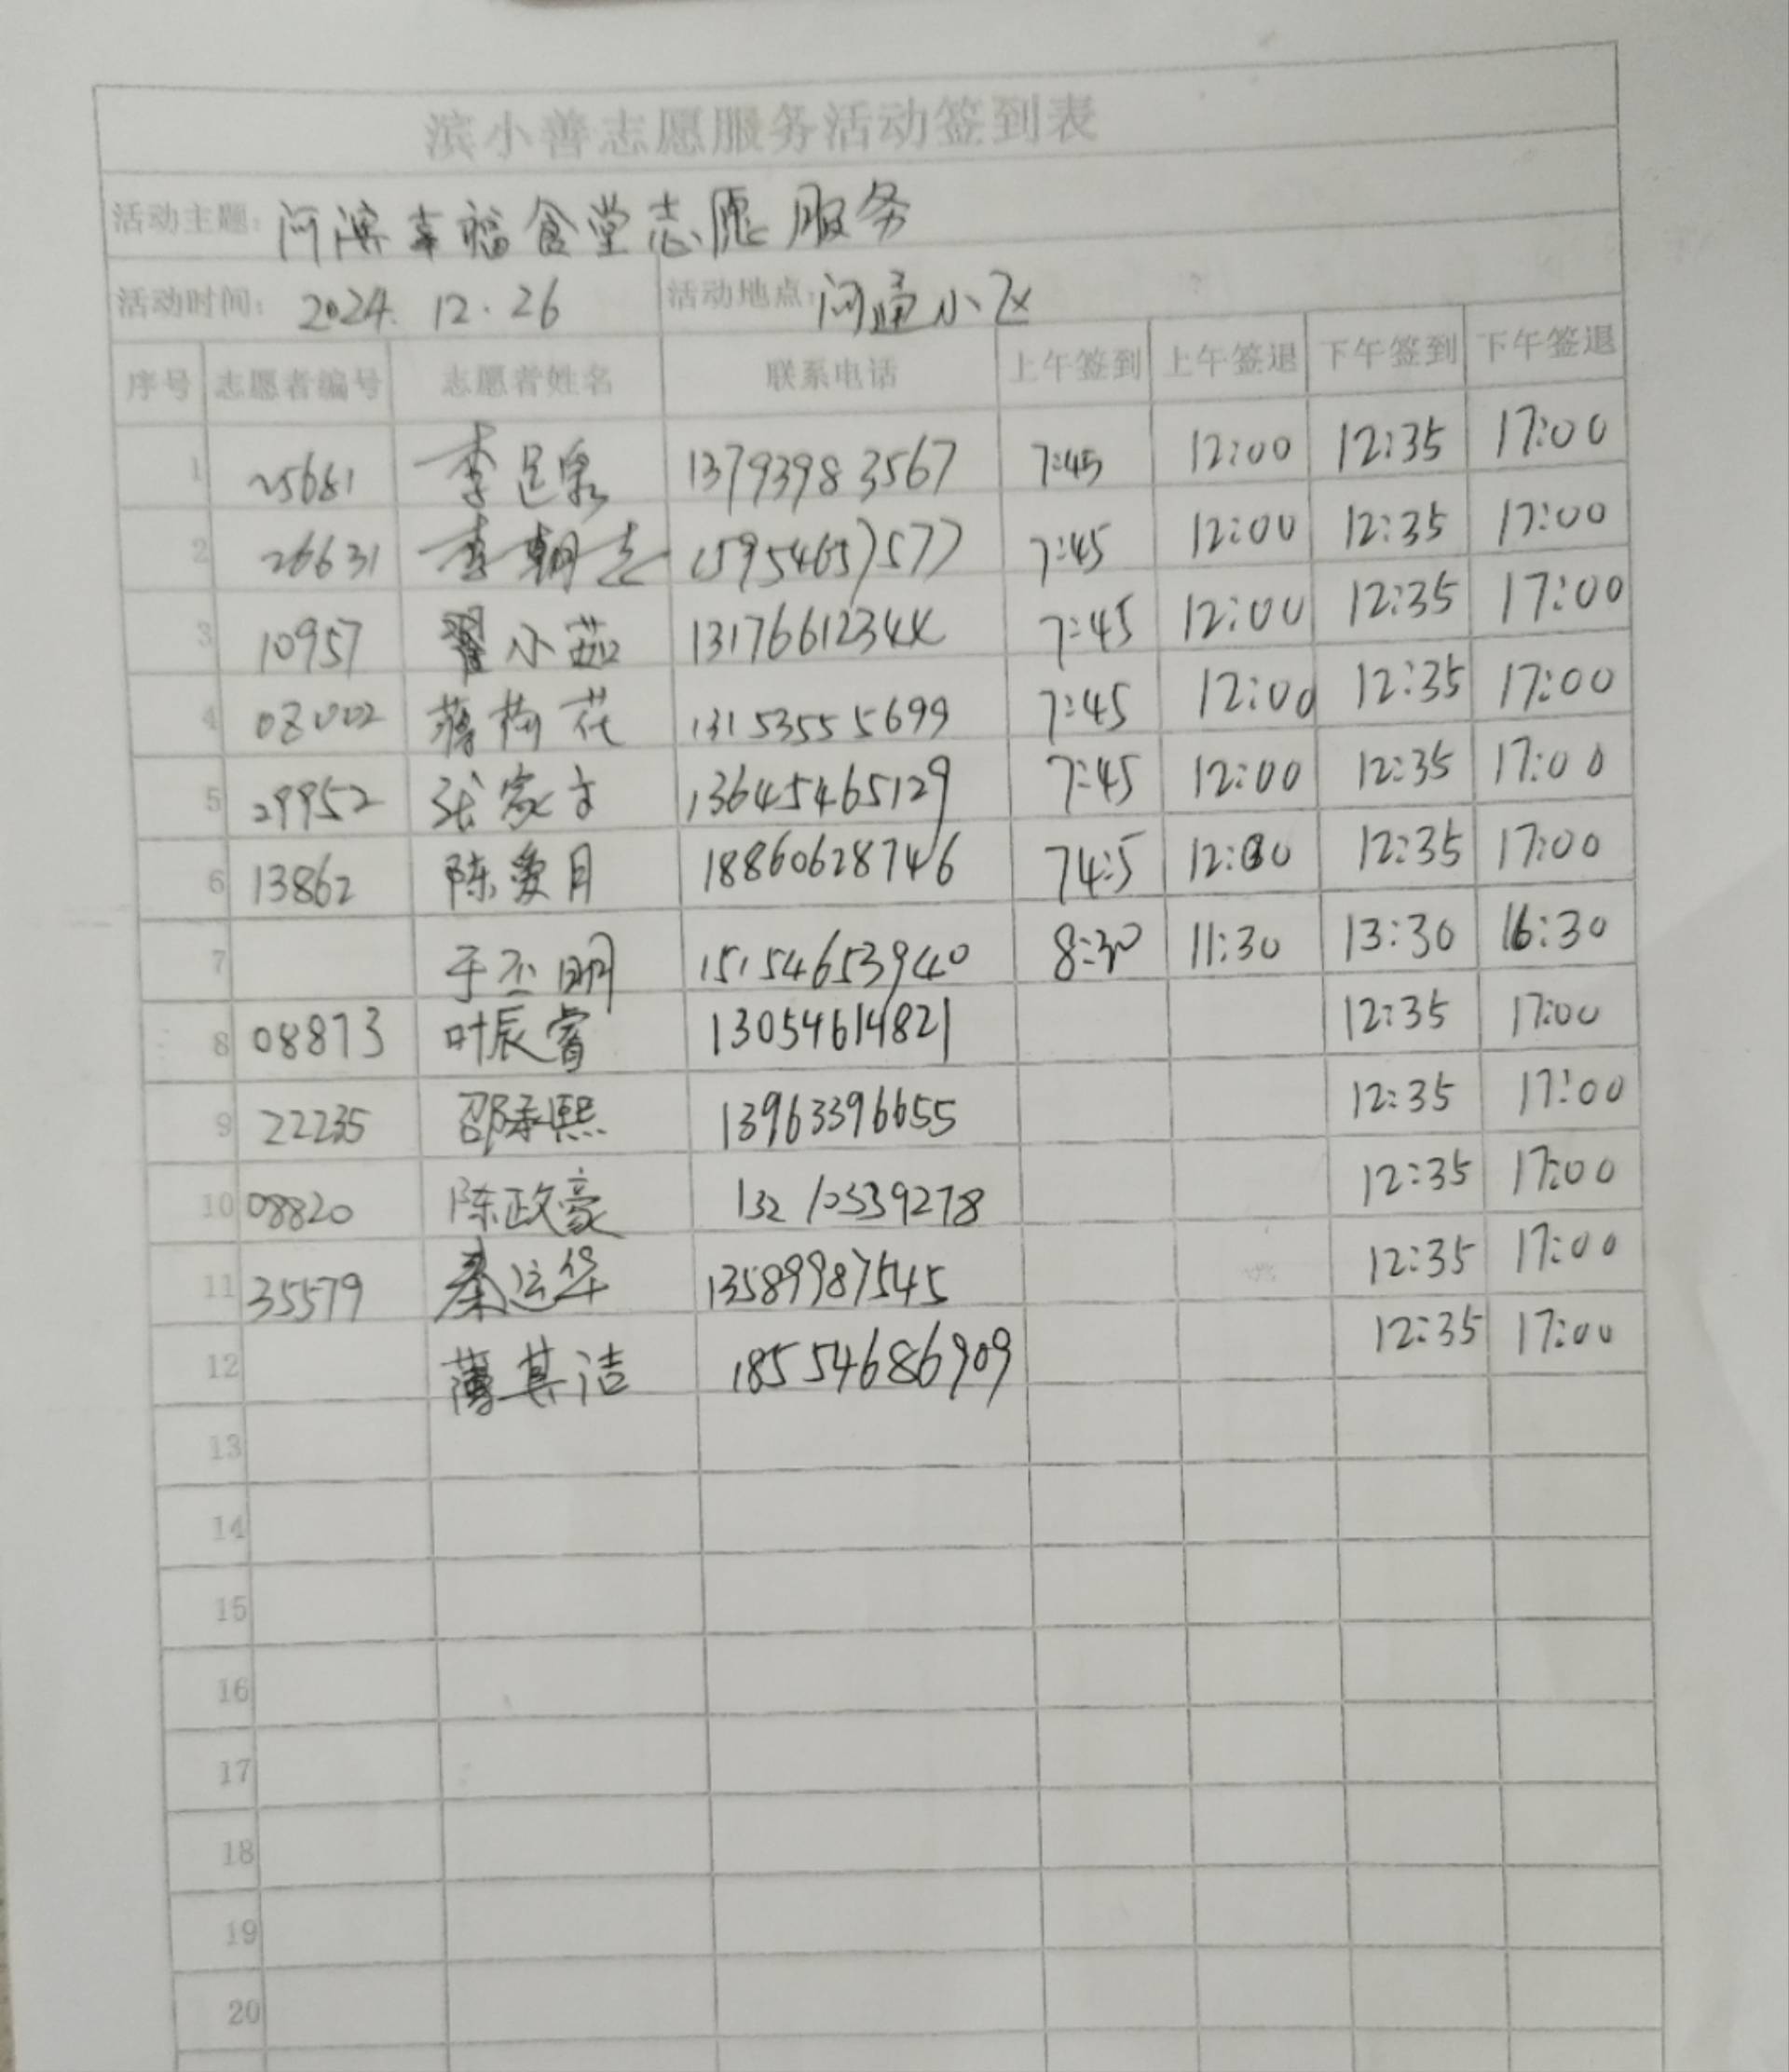 滨小善志愿服务活动签到表
活动主题: 河滨幸福食堂志愿服务
活动时间: 2024.12.26 活动地点: 河通小区
序号 志愿者编号 志愿者姓名 联系电话 上午签到 上午签退 下午签到 下午签退
1 25681 李足泉 13793983567 7:45 12:00 12:35 17:00
2 26631 李朝 15954657577 7:45 12:00 12:35 17:00
3 10957 翟小茹 13176612344 7:45 12:00 12:35 17:00
4 08002 蒋梅花 13153555699 7:45 12:00 12:35 17:00
5 29952 张家文 13645465129 7:45 12:00 12:35 17:00
6 13862 陈爱月 18860628746 74:5 12:00 12:35 17:00
7 于丕明 15154653940 8:30 11:30 13:30 16:30
8 08873 叶辰睿 13054614821 12:35 17:00
9 22235 邵承熙 13963396655 12:35 17:00
10 08820 陈政豪 132 10539278 12:35 17:00
11 35579 秦运华 13589987545 12:35 17:00
12 薄其洁 18554686909 12:35 17:00
13
14
15
16
17
18
19
20